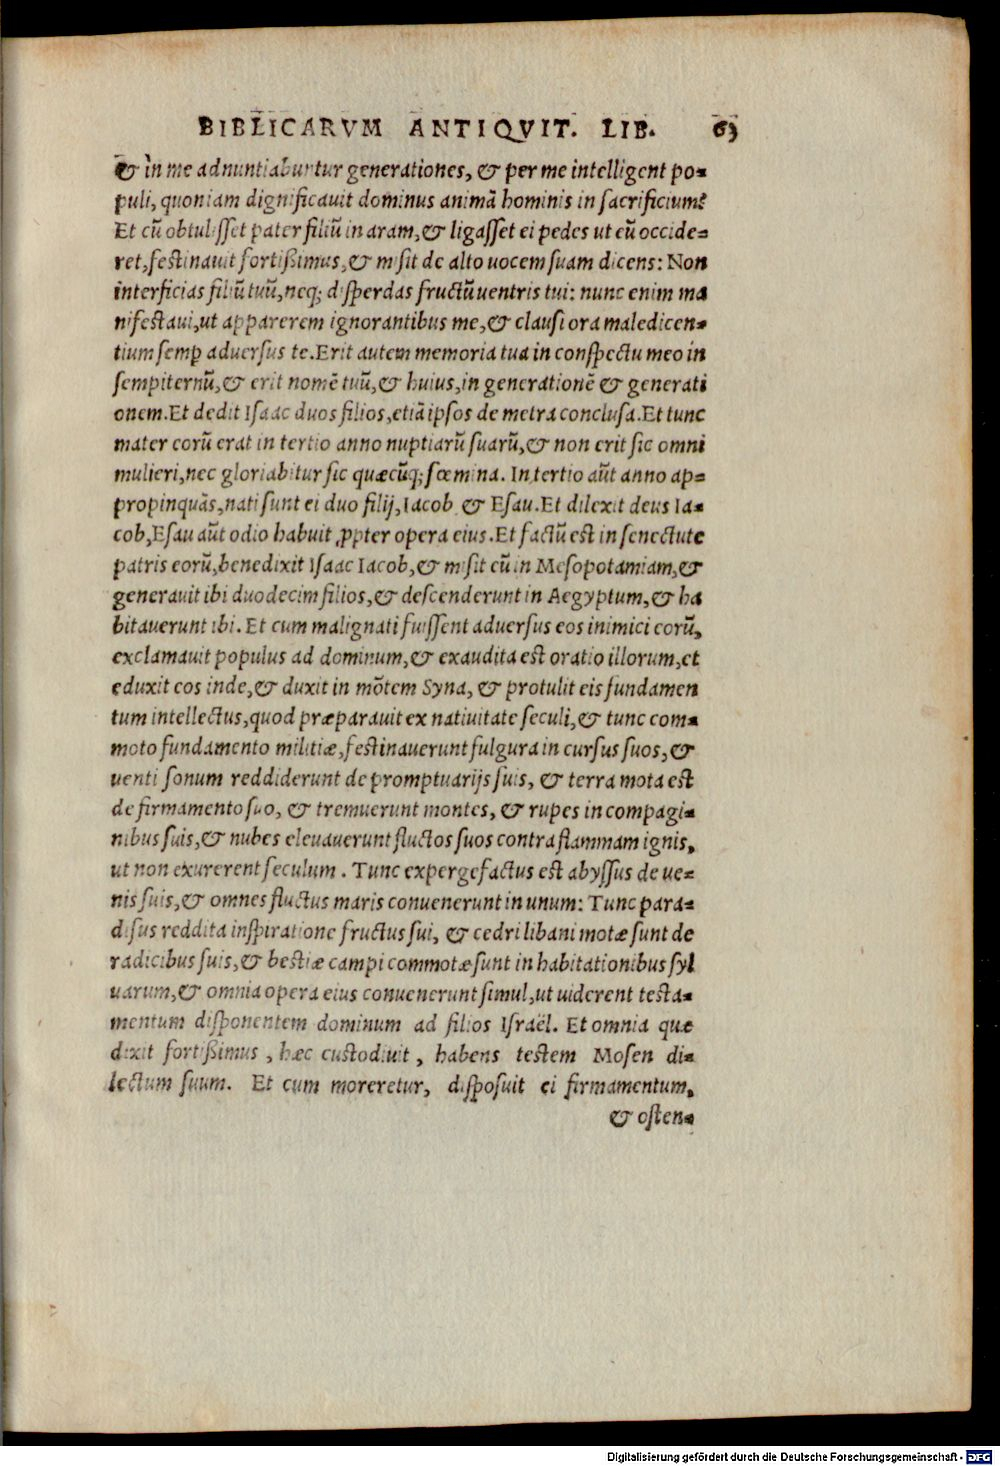 BIBLICARVM ANTIQVIT. LIB. 63
& in me adnuntiabuntur generationes, & per me intelligent po-
puli, quoniam dignificauit dominus animā hominis in sacrificium?
Et cū obtulisset pater filiū in aram, & ligasset ei pedes ut eū occide-
ret, festinauit fortißimus, & misit de alto uocem suam dicens: Non
interficias filiū tuū, neq; disperdas fructū uentris tui: nunc enim ma
nifestaui, ut apparerem ignorantibus me, & clausi ora maledicen-
tium semp aduersus te. Erit autem memoria tua in conspectu meo in
sempiternū, & erit nomē tuū, & huius, in generationē & generati
onem. Et dedit Isaac duos filios, etiā ipsos de metra conclusa. Et tunc
mater eorū erat in tertio anno nuptiarū suarū, & non erit sic omni
mulieri, nec gloriabitur sic quæcūq; fœmina. In tertio aūt anno ap-
propinquās, nati sunt ei duo filij, Iacob & Esau. Et dilexit deus Ia-
cob, Esau aūt odio habuit ꝓpter opera eius. Et factū est in senectute
patris eorū, benedixit Isaac Iacob, & misit eū in Mesopotamiam, &
generauit ibi duodecim filios, & descenderunt in Aegyptum, & ha
bitauerunt ibi. Et cum malignati fuissent aduersus eos inimici eorū,
exclamauit populus ad dominum, & exaudita est oratio illorum, et
eduxit eos inde, & duxit in mōtem Syna, & protulit eis fundamen
tum intellectus, quod præparauit ex natiuitate seculi, & tunc com-
moto fundamento militiæ, festinauerunt fulgura in cursus suos, &
uenti sonum reddiderunt de promptuarijs suis, & terra mota est
de firmamento suo, & tremuerunt montes, & rupes in compagi-
nibus suis, & nubes eleuauerunt fluctos suos contra flammam ignis,
ut non exurerent seculum. Tunc expergefactus est abyssus de ue-
nis suis, & omnes fluctus maris conuenerunt in unum: Tunc para-
disus reddita inspiratione fructus sui, & cedri libani motæ sunt de
radicibus suis, & bestiæ campi commotæ sunt in habitationibus syl
uarum, & omnia opera eius conuenerunt simul, ut uiderent testa-
mentum disponentem dominum ad filios Israël. Et omnia quæ
dixit fortißimus, hæc custodiuit, habens testem Mosen di-
lectum suum. Et cum moreretur, disposuit ei firmamentum,
& osten-
Digitalisierung gefördert durch die Deutsche Forschungsgemeinschaft - DFG